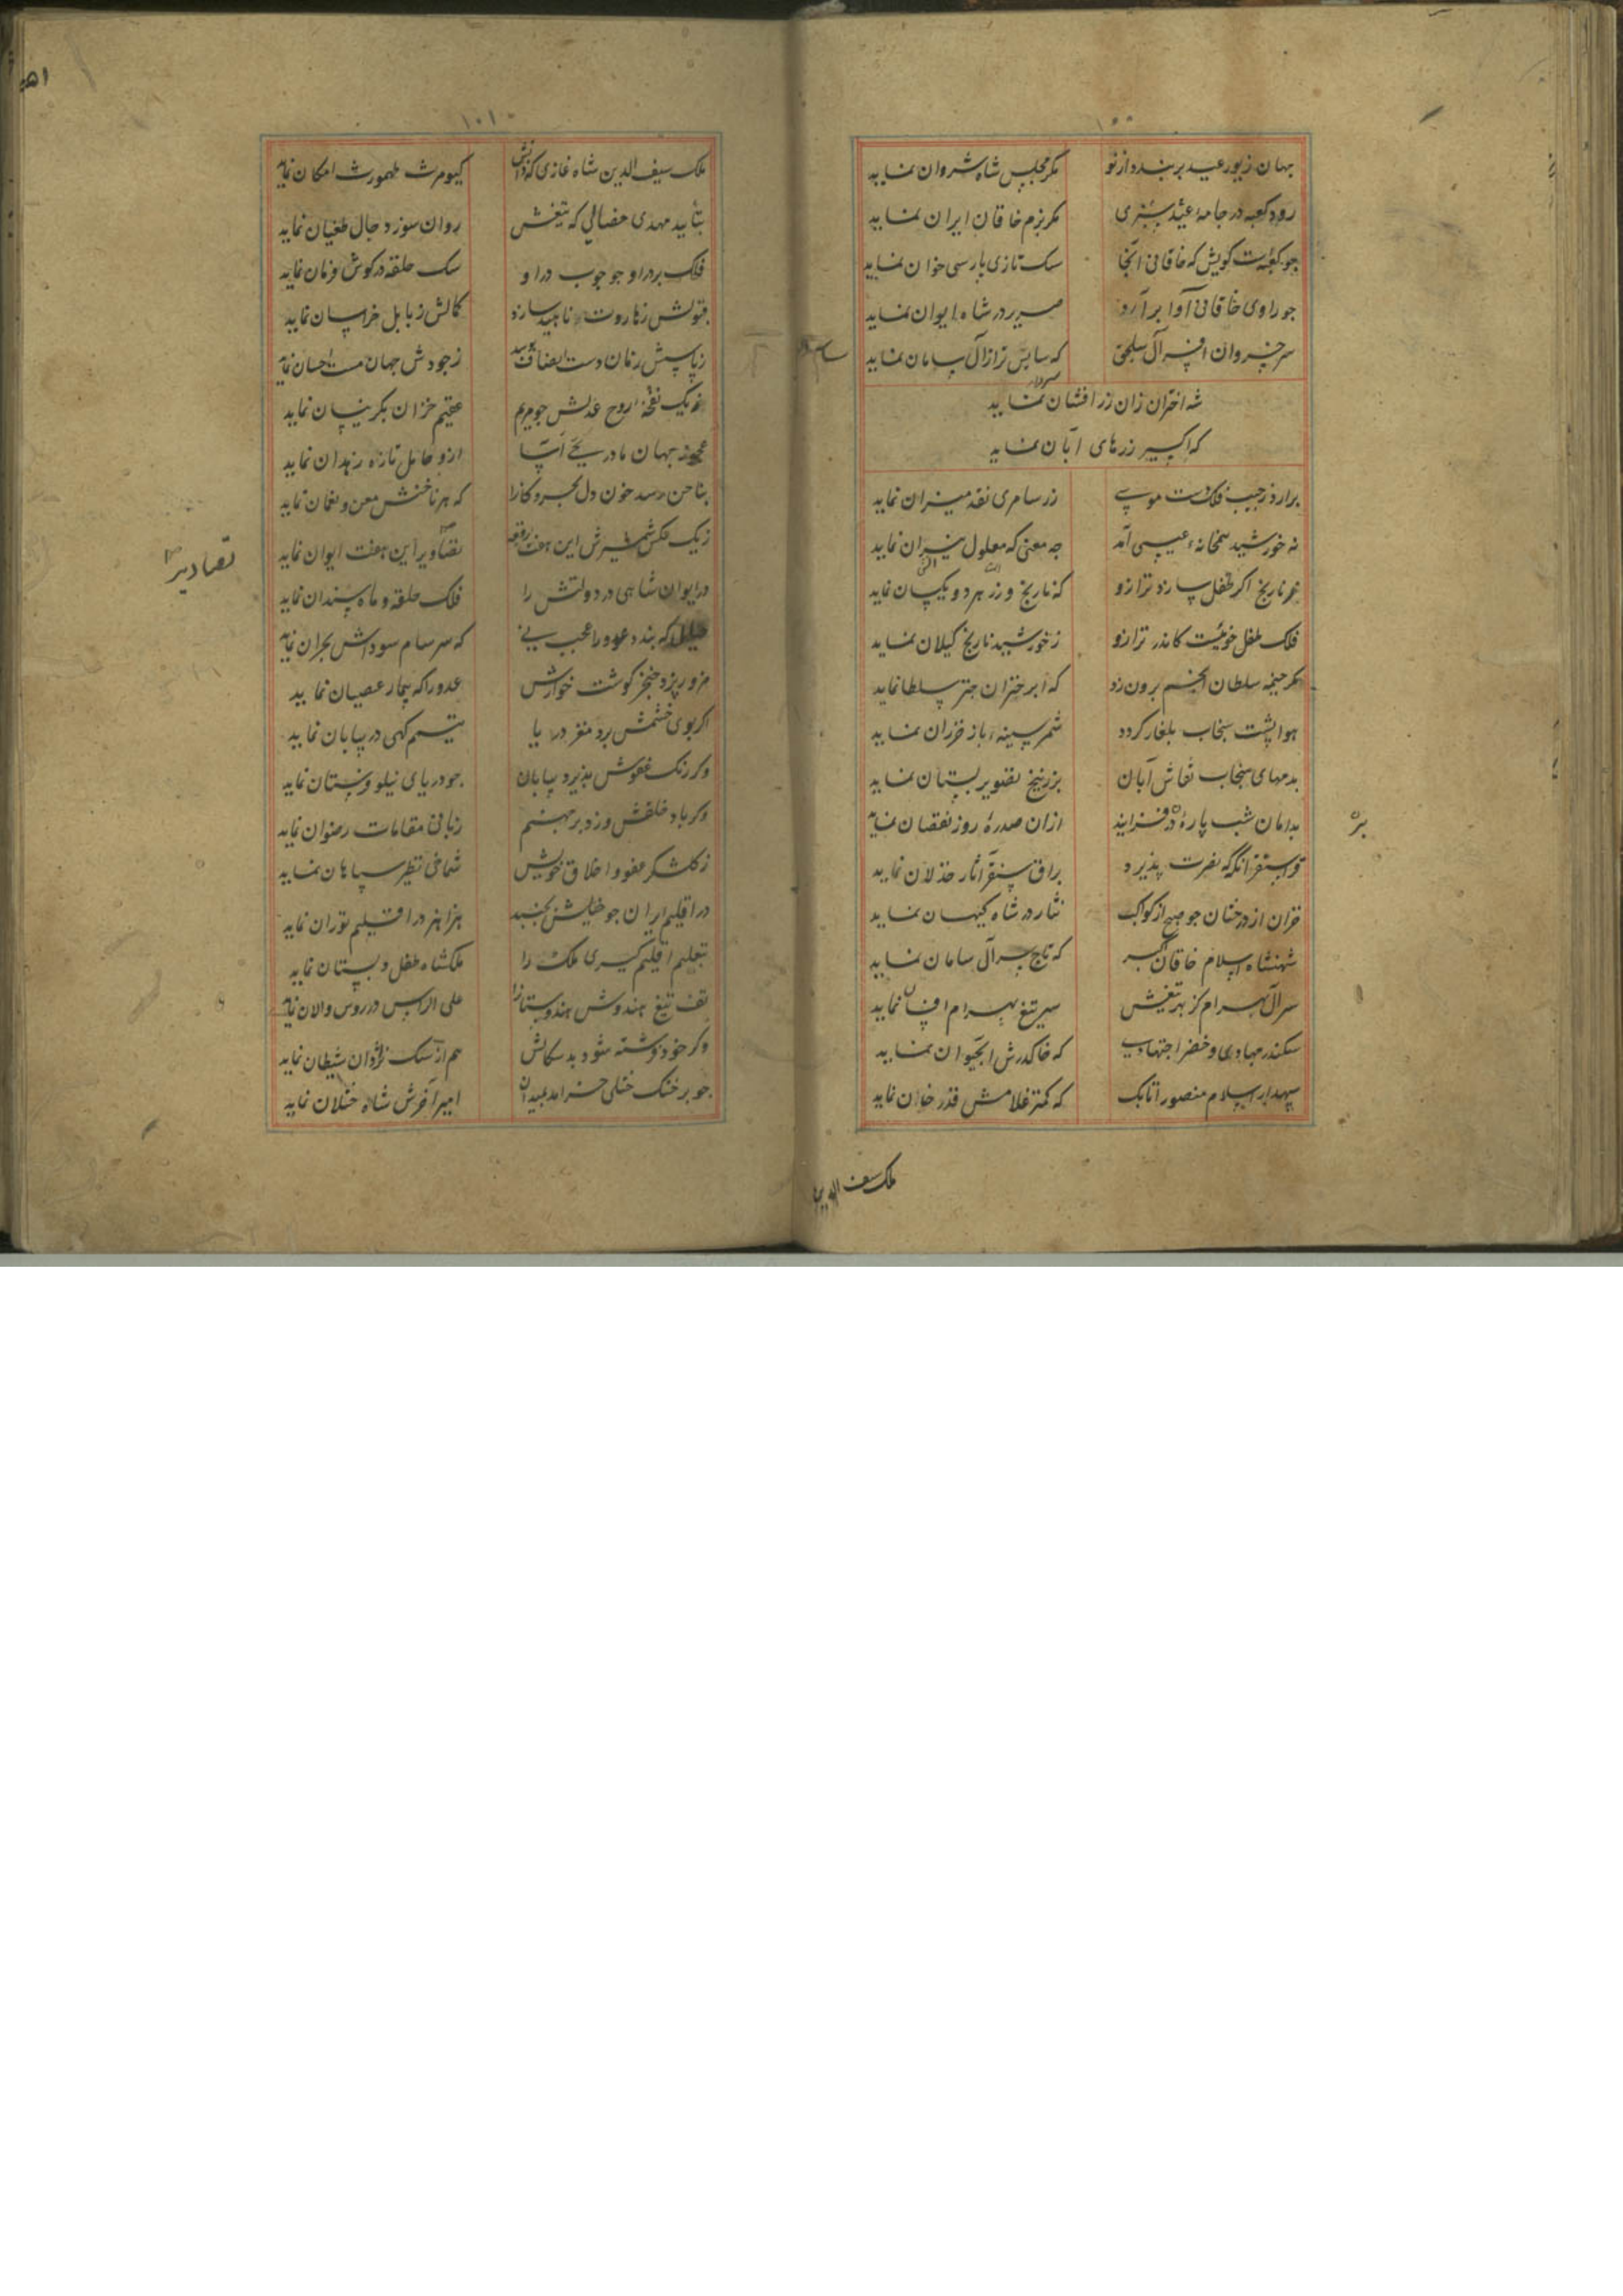 ۱۰۰
جهان زیور عید بربندد از نو مکر مجلس شاه شروان نماید
رود کعبه در جامهٔ عید سبزی مکر بزم خاقان ایران نماید
چو کعبه‌ست کویش که خاقانی آنجا سک تازی پارسی خوان نماید
جو راوی خاقانی آوا برآرد صریر در شاه ایوان نماید
سر خسروان افسر آل سلجق که سایس تر از آل سامان نماید
شه اختران زان زر افشان نماید
که اکسیر زرهای آبان نماید
برارد ز جیب فلک دست موسی زر سامری نقد میزان نماید
نه خورشید همخانهٔ عیسی آمد چه معنی که معلول میزان نماید
نارنج اکر طفل سازد ترازو که نارنج و زر هر دو یکسان نماید
فلک طفل خوئیست کاندر ترازو ز خورشید نارنج کیلان نماید
مکر خیمه سلطان انجم برون زد که ابر خزان چتر سلطان نماید
هوا پشت سنجاب بلغار کردد شمر سینهٔ باز خزران نماید
بدمهای سنجاب نقاش آبان بزرنیخ تصویر بستان نماید
بدامان شب پارهٔ در فزاید از آن صدرهٔ روز نقصان نماید
قراسنقر آنکه که نصرت پذیرد براق سنقر آثار خذلان نماید
خزان از درختان جو صبح از کواکب نثار در شاه کیهان نماید
شهنشاه اسلام خاقان اکبر که تاج سر آل سامان نماید
سر آل بهرام کز بهر تیغش سر تیغ بهرام افسان نماید
سکندر جهادی و خضر اجتهادی که خاک درش آب حیوان نماید
سپهدار اسلام منصور اتابک که کمتر غلامش قدر خان نماید
ملک سیف الدین
۱۰۱
ملک سیف الدین شاه غازی که ذاتش کیومرث طهمورث امکان نماید
بتأیید مهدی خصالی که تیغش روان سوز دجال طغیان نماید
فلک بر در او جو جوب در او سک حلقه در کوش فرمان نماید
بتولش ز هاروت ناهید سازد کمالش ز بابل خراسان نماید
ز پاسش زمان دست انصاف بوسد ز جودش جهان مست احسان نماید
یک نفخهٔ روح عدلش جو مریم عقیم خزان بکر نیسان نماید
عجوز جهان مادر یحیی آسا ازو حامل تازه زهدان نماید
بناخن رسد خون دل بحر و کانرا که هر ناخنش معن و نعمان نماید
ز یک عکس شمشیرش این هفت رقعه تصاویر این هفت ایوان نماید
در ایوان شاهی در دولتش را فلک حلقه و ماه سندان نماید
که بندد عدو را عجب نی که سرسام سوداش بحران نماید
مزور پزد خنجر کوشت خوارش عدو را که بیمار عصیان نماید
اکر بوی خشمش برد مغز دریا تیمم کهی در بیابان نماید
وکر رنک عفوش پذیرد بیابان جو دریای نیلوفرستان نماید
وکر باد خلقش وزد بر جهنم زبانی مقامات رضوان نماید
ز کلشکر عفو و اخلاق خویش شماخی نظیر سپاهان نماید
در اقلیم ایران جو خیلش بجنبد هزاهز در اقلیم توران نماید
بتعلیم اقلیم کیری ملک را ملکشاه طفل دبستان نماید
تف تیغ هندوش هندوستانرا علی الرأس در روس و الان نماید
وکر خود فرشته شود بدسکالش هم از سک نژادان شیطان نماید
جو بر خنک ختلی خرامد بمیدان امیر آخرش شاه ختلان نماید
تصاویر